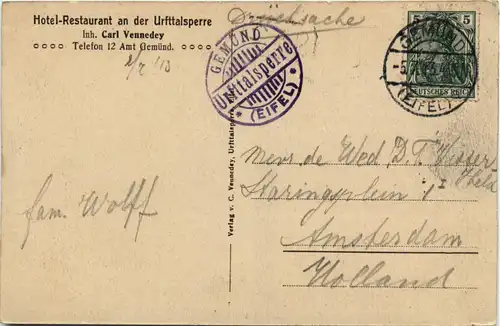 Hotel-Restaurant an der Urfttalsperre
Inh. Carl Vennedey
Telefon 12 Amt Gemünd.
Drucksache
GEMÜND
Urfttalsperre
(EIFEL)
5 5
DEUTSCHES REICH
GEMÜND
(EIFEL)
Verlag v. C. Vennedey, Urfttalsperre
fam. Wolff
Mevr de Wed. D. T. Visser
Staringplein
Amsterdam
Holland